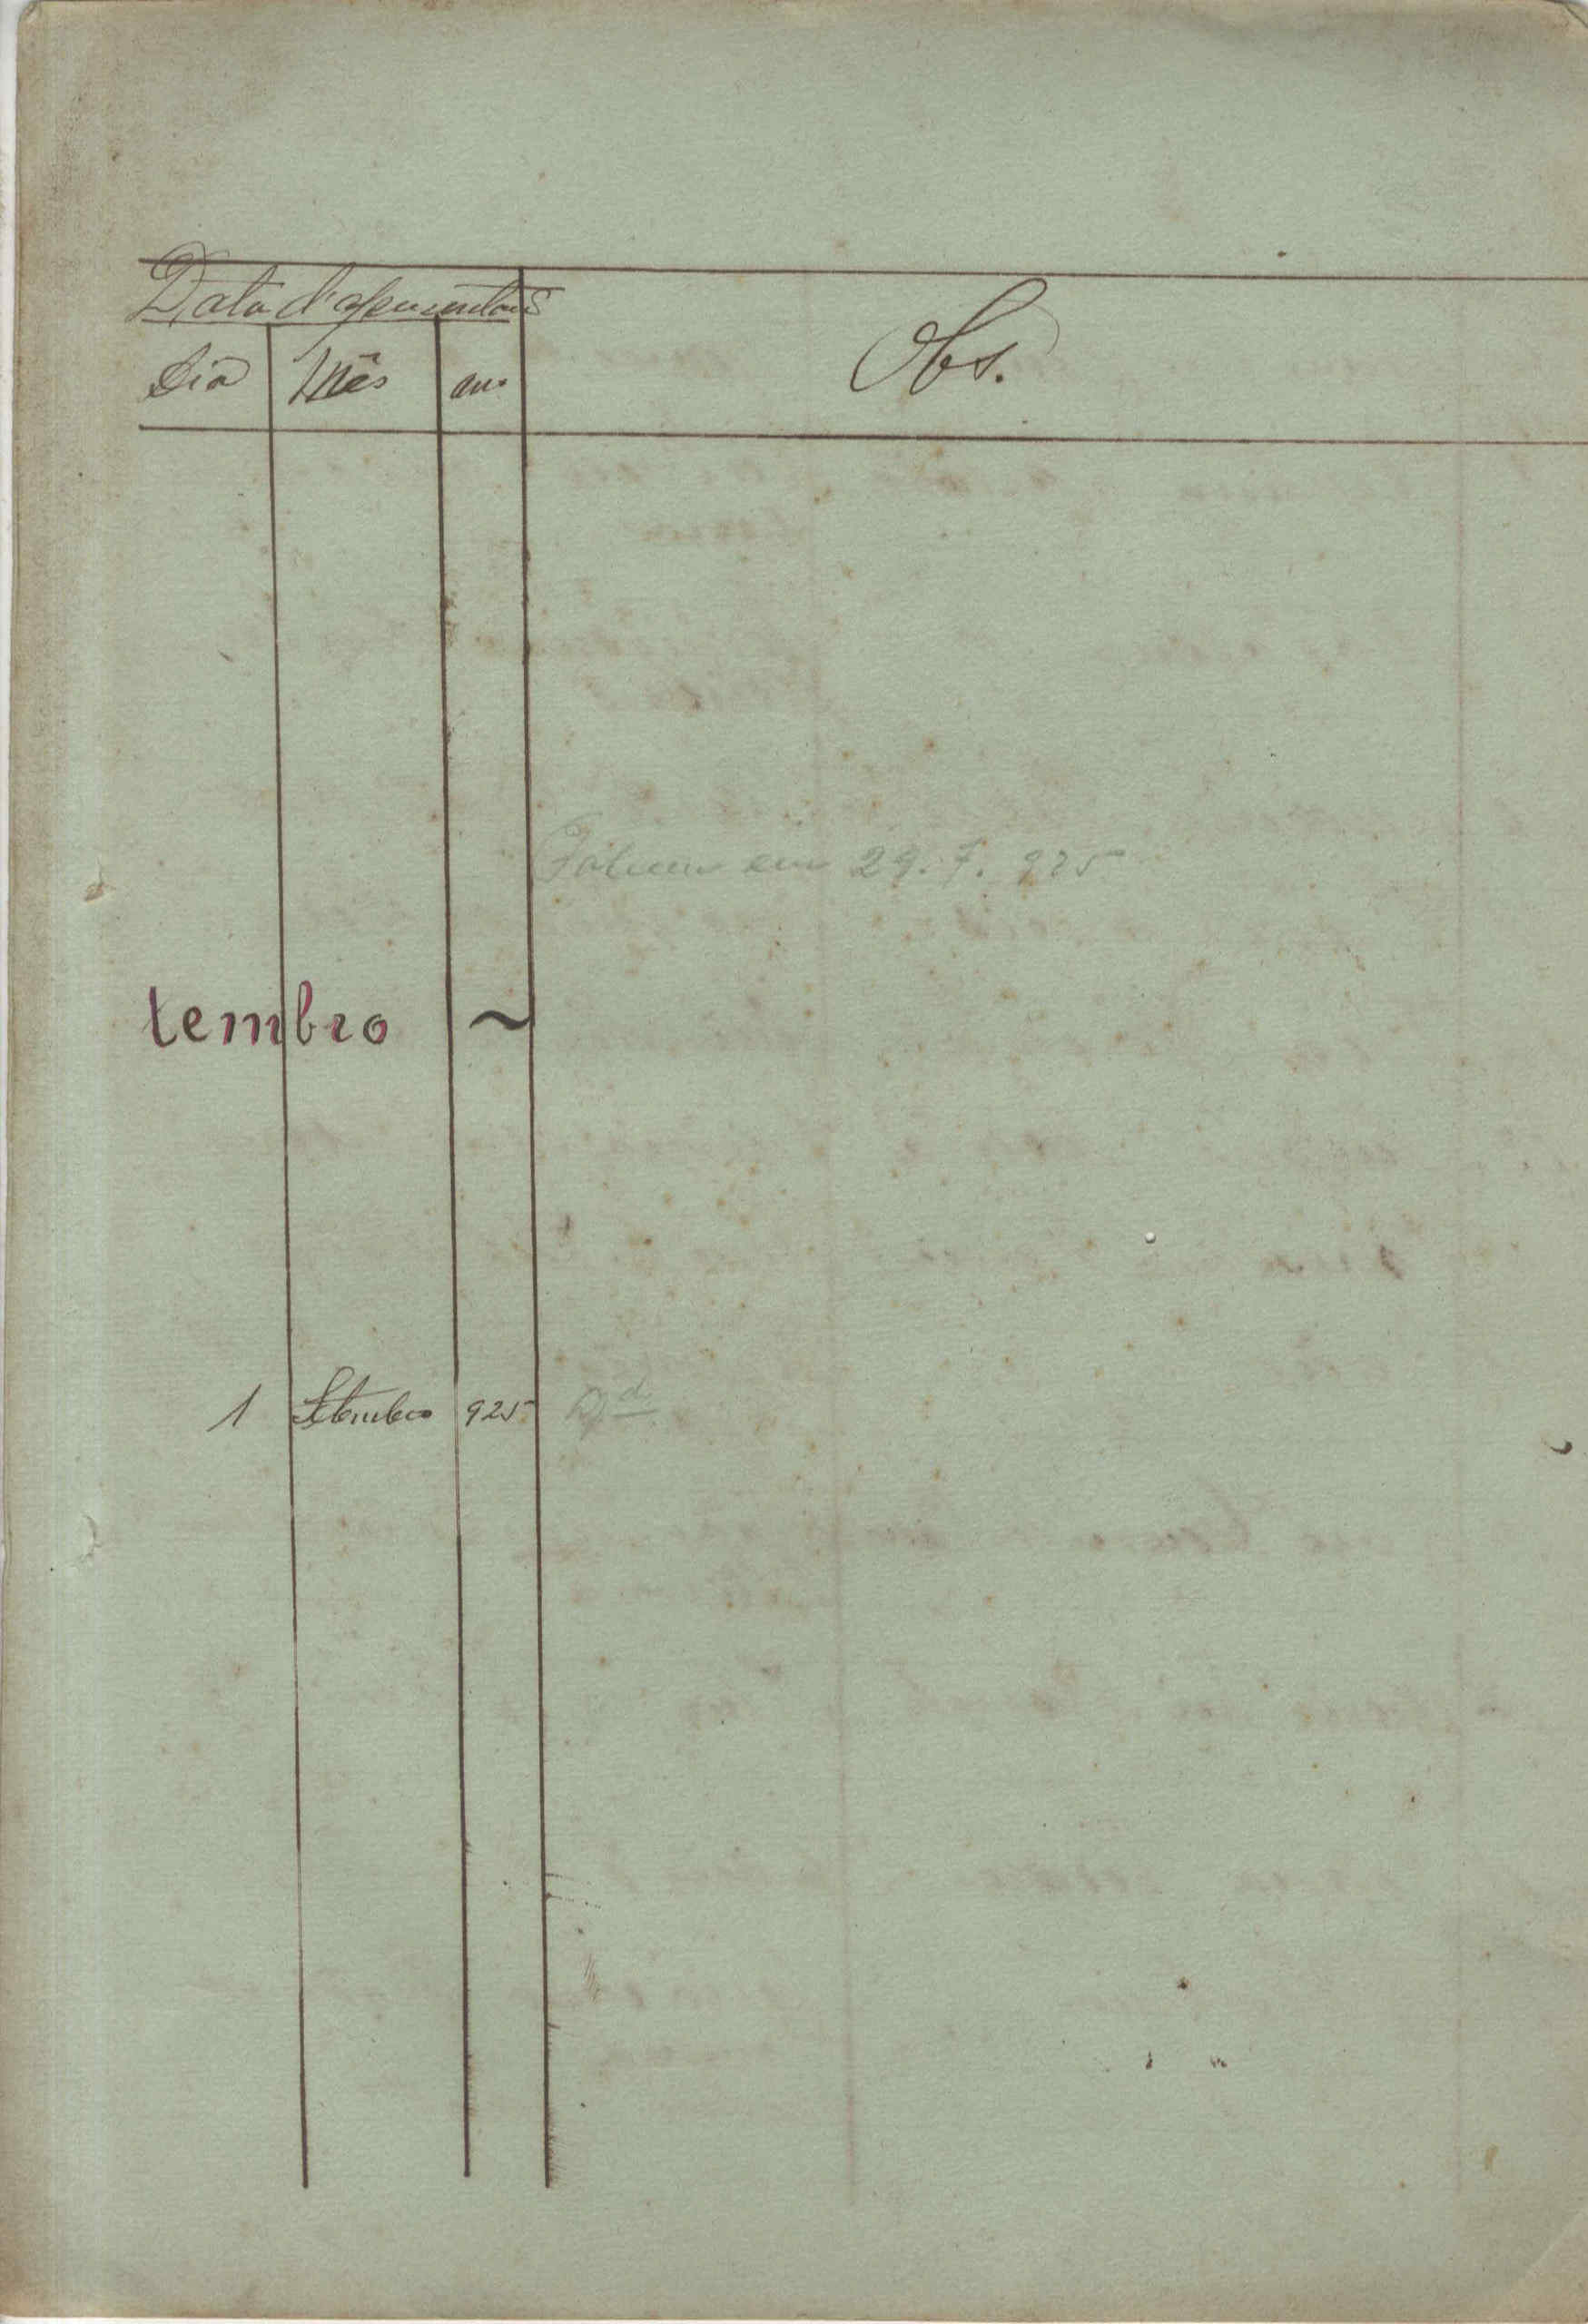 Data d'apresentação
Dia Mês ano
Obs.
Faleceu em 29.7.925
tembro ~
1 Setembro 925